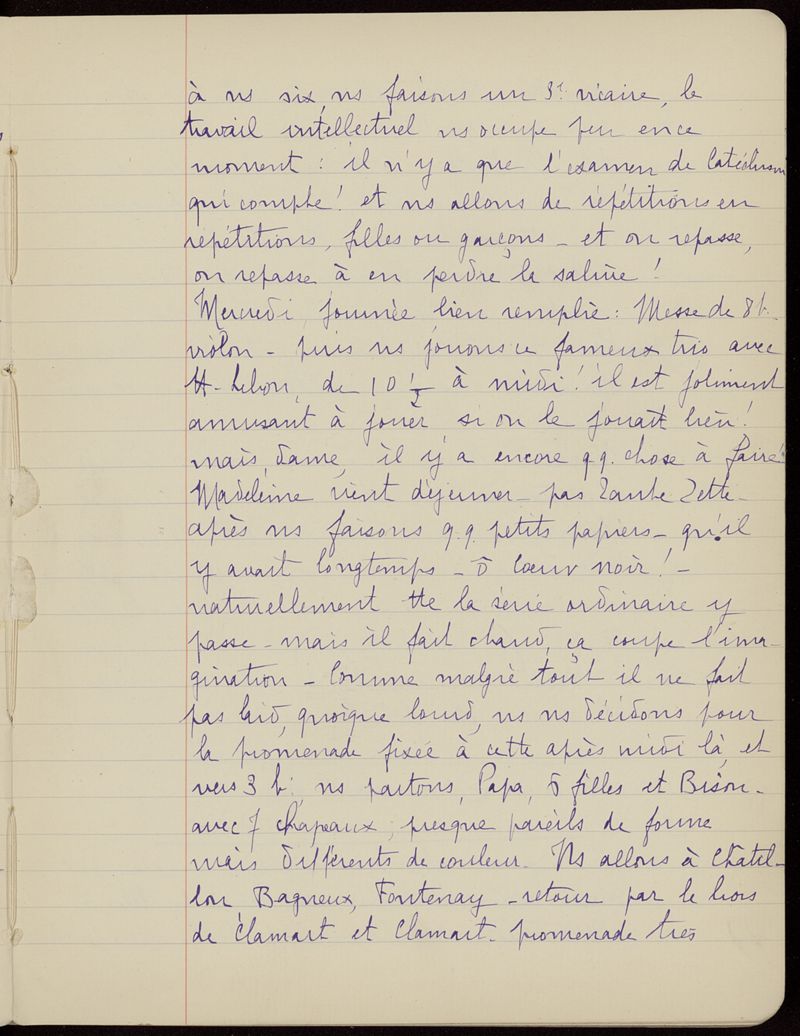 à ns six, ns faisons un 3e vicaire, le
travail intellectuel ns occupe peu en ce
moment : il n'y a que l'examen de Catéchisme
qui compte ! et ns allons de répétitions en
répétitions, filles ou garçons - et on repasse,
on repasse à en perdre la salive !
Mercredi, journée bien remplie : Messe de 8 h.
violon - puis ns jouons ce fameux trio avec
H. Lebon, de 10 1/2 à midi ! il est joliment
amusant à jouer si on le jouait bien !
mais, dame, il y a encore qq. chose à faire !
Madeleine vient déjeuner - pas Tante Zette -
après ns faisons qq. petits papiers - qu'il
y avait longtemps - ô Coeur noir ! -
naturellement tte la série ordinaire y
passe - mais il fait chaud, ça coupe l'ima-
gination - Comme malgré tout il ne fait
pas laid, quoique lourd, ns ns décidons pour
la promenade fixée à cette après midi là, et
vers 3 h. ns partons, Papa, 5 filles et Bison -
avec 7 chapeaux, presque pareils de forme
mais différents de couleur. Ns allons à Châtil-
lon Bagneux, Fontenay - retour par le bois
de Clamart et Clamart. promenade très